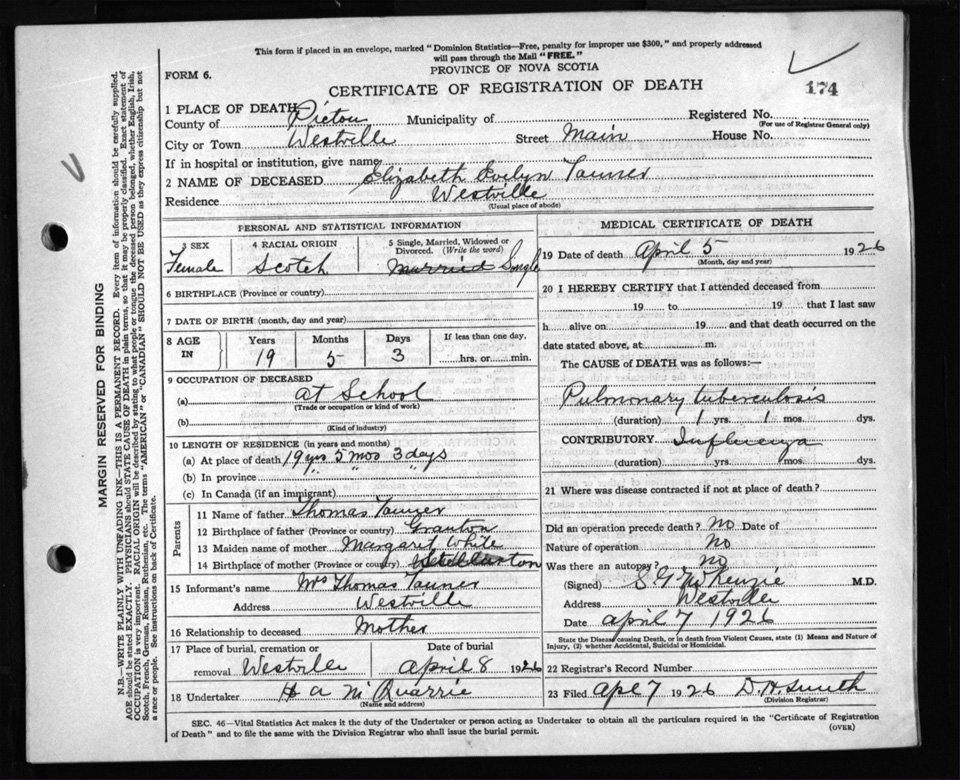 This form if placed in an envelope, marked "Dominion Statistics—Free, penalty for improper use $300," and properly addressed
will pass through the Mail "FREE."
PROVINCE OF NOVA SCOTIA
FORM 6.
CERTIFICATE OF REGISTRATION OF DEATH
174
1 PLACE OF DEATH
County of Pictou Municipality of Registered No.
(For use of Registrar General only)
City or Town Westville Street Main House No.
If in hospital or institution, give name
2 NAME OF DECEASED Elizabeth Evelyn Tanner
Residence Westville
(Usual place of abode)
PERSONAL AND STATISTICAL INFORMATION
3 SEX Female
4 RACIAL ORIGIN Scotch
5 Single, Married, Widowed or Divorced. (Write the word) Married Single
6 BIRTHPLACE (Province or country)
7 DATE OF BIRTH (month, day and year)
8 AGE IN Years 19 Months 5 Days 3 If less than one day, hrs. or min.
9 OCCUPATION OF DECEASED
(a) at School
(Trade or occupation or kind of work)
(b)
(Kind of industry)
10 LENGTH OF RESIDENCE (in years and months)
(a) At place of death 19 yrs 5 mos 3 days
(b) In province " " "
(c) In Canada (if an immigrant)
Parents
11 Name of father Thomas Tanner
12 Birthplace of father (Province or country) Granton
13 Maiden name of mother Margaret White
14 Birthplace of mother (Province or country) Stellarton
15 Informant's name Mrs Thomas Tanner
Address Westville
16 Relationship to deceased Mother
17 Place of burial, cremation or removal Westville
Date of burial April 8 1926
18 Undertaker H A McQuarrie
(Name and address)
MEDICAL CERTIFICATE OF DEATH
19 Date of death April 5 1926
(Month, day and year)
20 I HEREBY CERTIFY that I attended deceased from
19 to 19 that I last saw
h alive on 19 and that death occurred on the
date stated above, at m.
The CAUSE of DEATH was as follows:—
Pulmonary tuberculosis
(duration) 1 yrs. 1 mos. dys.
CONTRIBUTORY Influenza
(duration) yrs. 1 mos. dys.
21 Where was disease contracted if not at place of death?
Did an operation precede death? No Date of
Nature of operation No
Was there an autopsy? no
(Signed) S G McKenzie M.D.
Address Westville
Date April 7 1926
State the Disease causing Death, or in death from Violent Causes, state (1) Means and Nature of
Injury, (2) whether Accidental, Suicidal or Homicidal.
22 Registrar's Record Number
23 Filed Apl 7 1926 D.H. Smith
(Division Registrar)
SEC. 46—Vital Statistics Act makes it the duty of the Undertaker or person acting as Undertaker to obtain all the particulars required in the "Certificate of Registration
of Death" and to file the same with the Division Registrar who shall issue the burial permit.
(OVER)
MARGIN RESERVED FOR BINDING
N.B.—WRITE PLAINLY WITH UNFADING INK—THIS IS A PERMANENT RECORD. Every item of information should be carefully supplied.
AGE should be stated EXACTLY. PHYSICIANS should STATE CAUSE OF DEATH in plain terms, so that it may be properly classified. Exact statement of
OCCUPATION is very important. RACIAL ORIGIN will be described by stating to what people or tongue the deceased person belonged, whether English, Irish,
Scotch, French, German, Russian, Ruthenian, etc. The terms "AMERICAN" or "CANADIAN" SHOULD NOT BE USED as they express citizenship but not
a race or people. See instructions on back of Certificate.